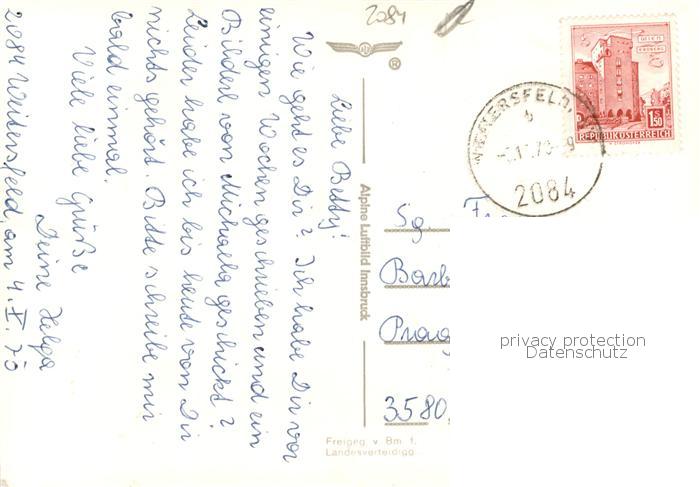 2084
Liebe Betty!
Wie geht es Dir? Ich habe Dir vor
einigen Wochen geschrieben und ein
Bilderl von Michaela geschickt?
Leider habe ich bis heute von Dir
nichts gehört. Bitte schreibe mir
bald einmal.
Viele liebe Grüße
Deine Helga
2084 Weitersfeld, am 4. X. 73
Alpine Luftbild Innsbruck
®
Freigeg. v. Bm. f.
Landesverteidigg.
WIEN
ERDBERG
1.50
REPUBLIK ÖSTERREICH
2084
Sg.
Barb
Prag
3580,
privacy protection
Datenschutz